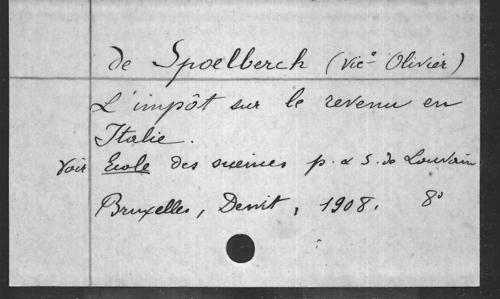 de Spoelberch (Vic^te Olivier)
L'impôt sur le revenu en
Italie.
Voir Ecole des sciences p. & s. de Louvain
Bruxelles, Dewit, 1908. 8°